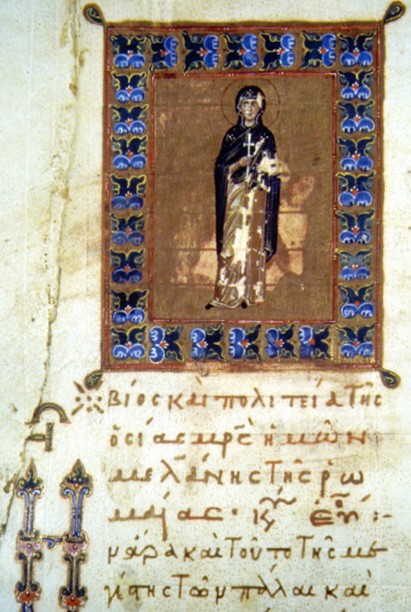 βίος καὶ πολιτεία τῆς
ὁσίας μρ̅ς ἡμῶν
μελάνης τῆς ῥω
μαίας·
Ἦν ἄρα καὶ τοῦτο τῆς με
γίστης τῶν πάλαι καὶ